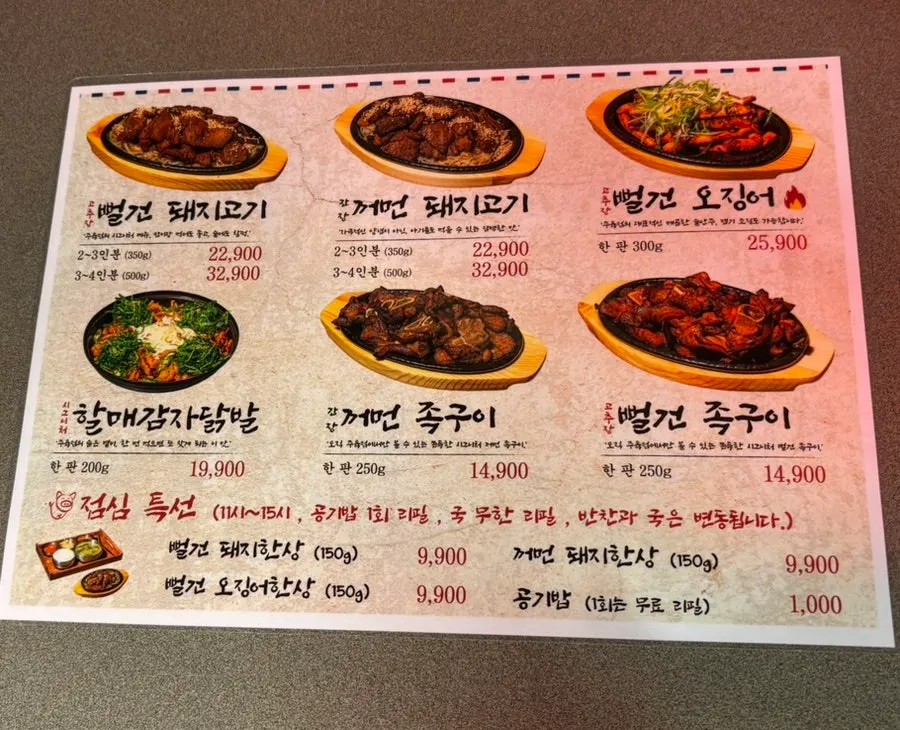 고추장 뻘건 돼지고기
2~3인분 (350g) 22,900
3~4인분 (500g) 32,900
간장 꺼먼 돼지고기
'자극적인 양념이 아닌, 아가들도 먹을 수 있는 담백한 맛.'
2~3인분 (350g) 22,900
3~4인분 (500g) 32,900
고추장 뻘건 오징어
한 판 300g 25,900
시그니처 할매감자닭발
한 판 200g 19,900
간장 꺼먼 족구이
한 판 250g 14,900
고추장 뻘건 족구이
한 판 250g 14,900
점심 특선 (11시~15시, 공기밥 1회 리필, 국 무한 리필, 반찬과 국은 변동됩니다.)
뻘건 돼지한상 (150g) 9,900
꺼먼 돼지한상 (150g) 9,900
뻘건 오징어한상 (150g) 9,900
공기밥 (1회는 무료 리필) 1,000